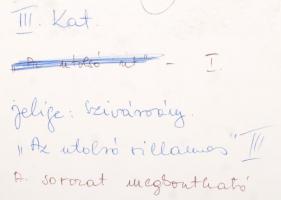 III. Kat.
„Az utolsó út” – I.
jelige: Szivárvány.
„Az utolsó villamos” III
A sorozat megbontható